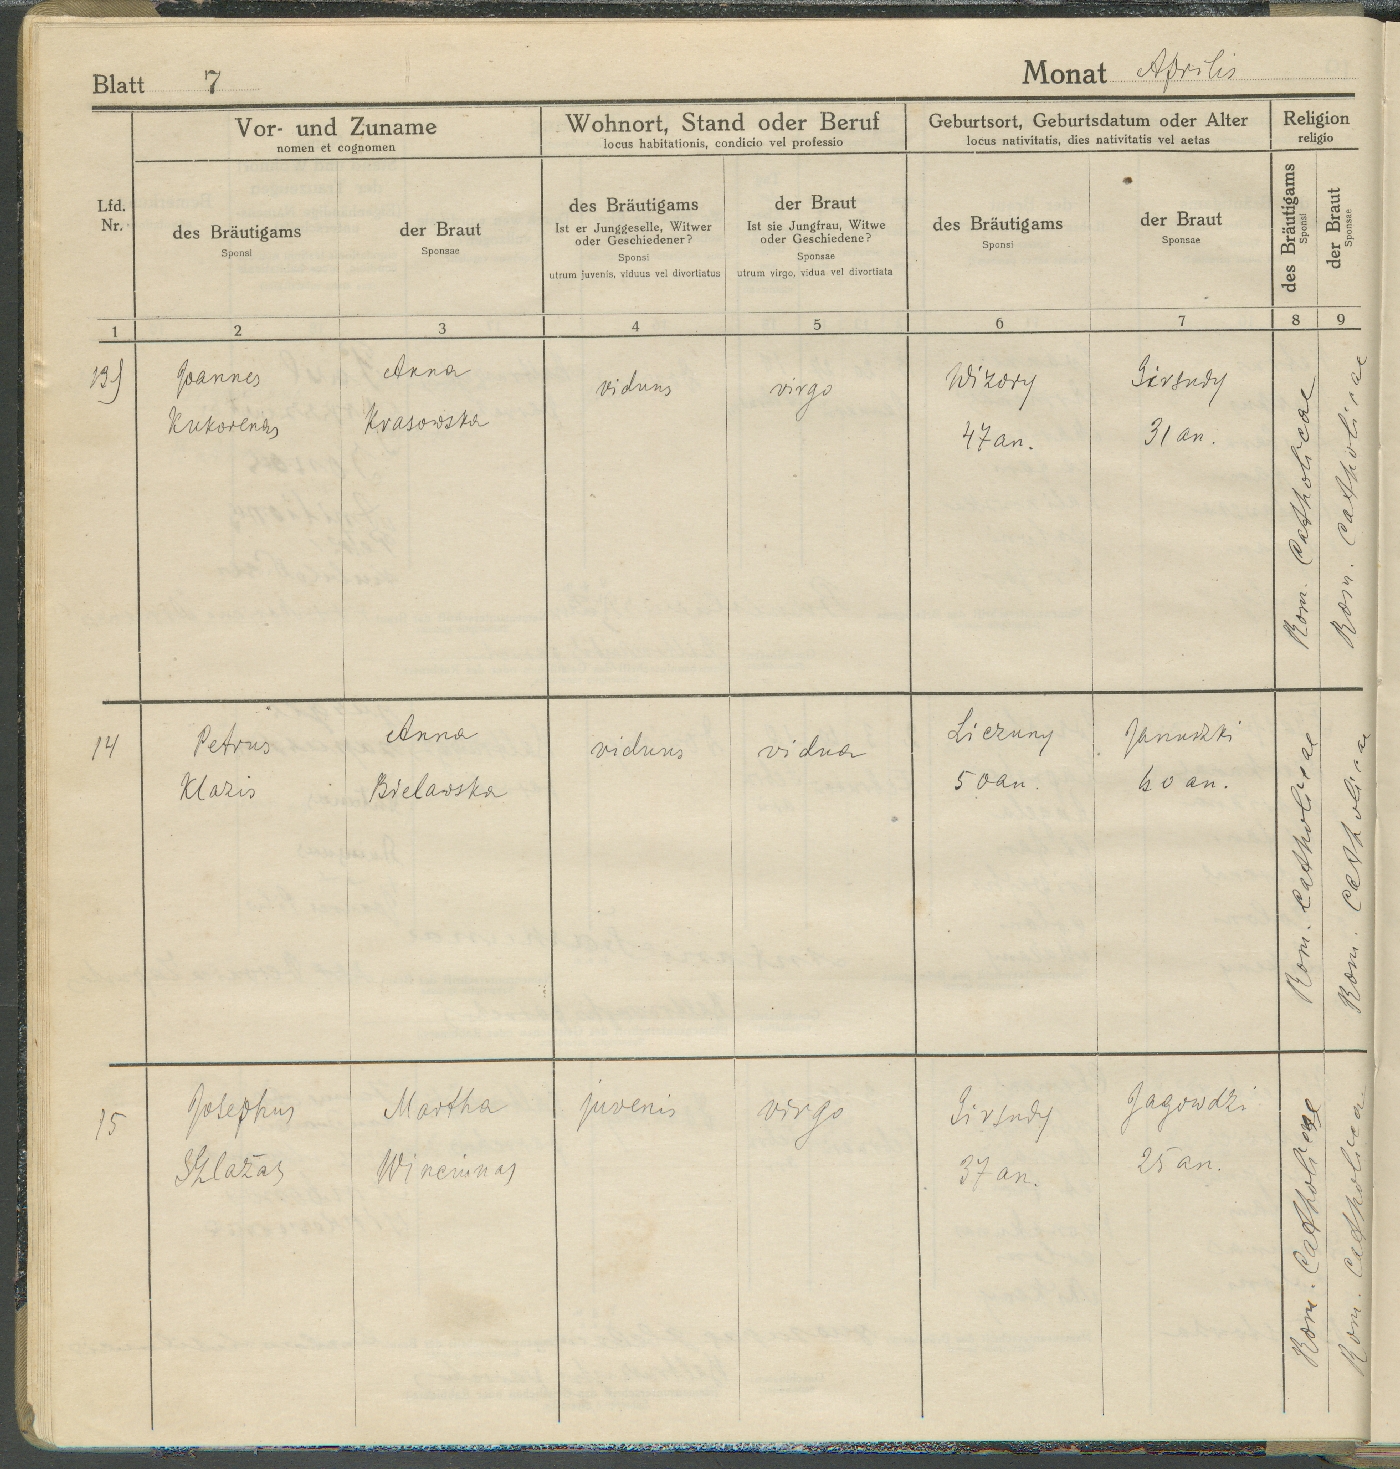 Blatt 7
Monat Aprilis
Lfd. Nr.
Vor- und Zuname
nomen et cognomen
Wohnort, Stand oder Beruf
locus habitationis, condicio vel professio
Geburtsort, Geburtsdatum oder Alter
locus nativitatis, dies nativitatis vel aetas
Religion
religio
des Bräutigams
Sponsi
der Braut
Sponsae
des Bräutigams
Ist er Junggeselle, Witwer
oder Geschiedener?
Sponsi
utrum juvenis, viduus vel divortiatus
der Braut
Ist sie Jungfrau, Witwe
oder Geschiedene?
Sponsae
utrum virgo, vidua vel divortiata
des Bräutigams
Sponsi
der Braut
Sponsae
des Bräutigams
Sponsi
der Braut
Sponsae
1 2 3 4 5 6 7 8 9
13)
Joannes
Kukorenas
Anna
Krasowska
viduus
virgo
Wizory
47 an.
Girsudy
31 an.
Rom. Catholicae
Rom. Catholicae
14
Petrus
Klazis
Anna
Bielawska
viduus
vidua
Liczuny
50 an.
Januszki
60 an.
Rom. Catholicae
Rom. Catholicae
15
Josephus
Szlažas
Martha
Winciunas
juvenis
virgo
Girsudy
37 an.
Jagowdzi
25 an.
Rom. Catholicae
Rom. Catholicae